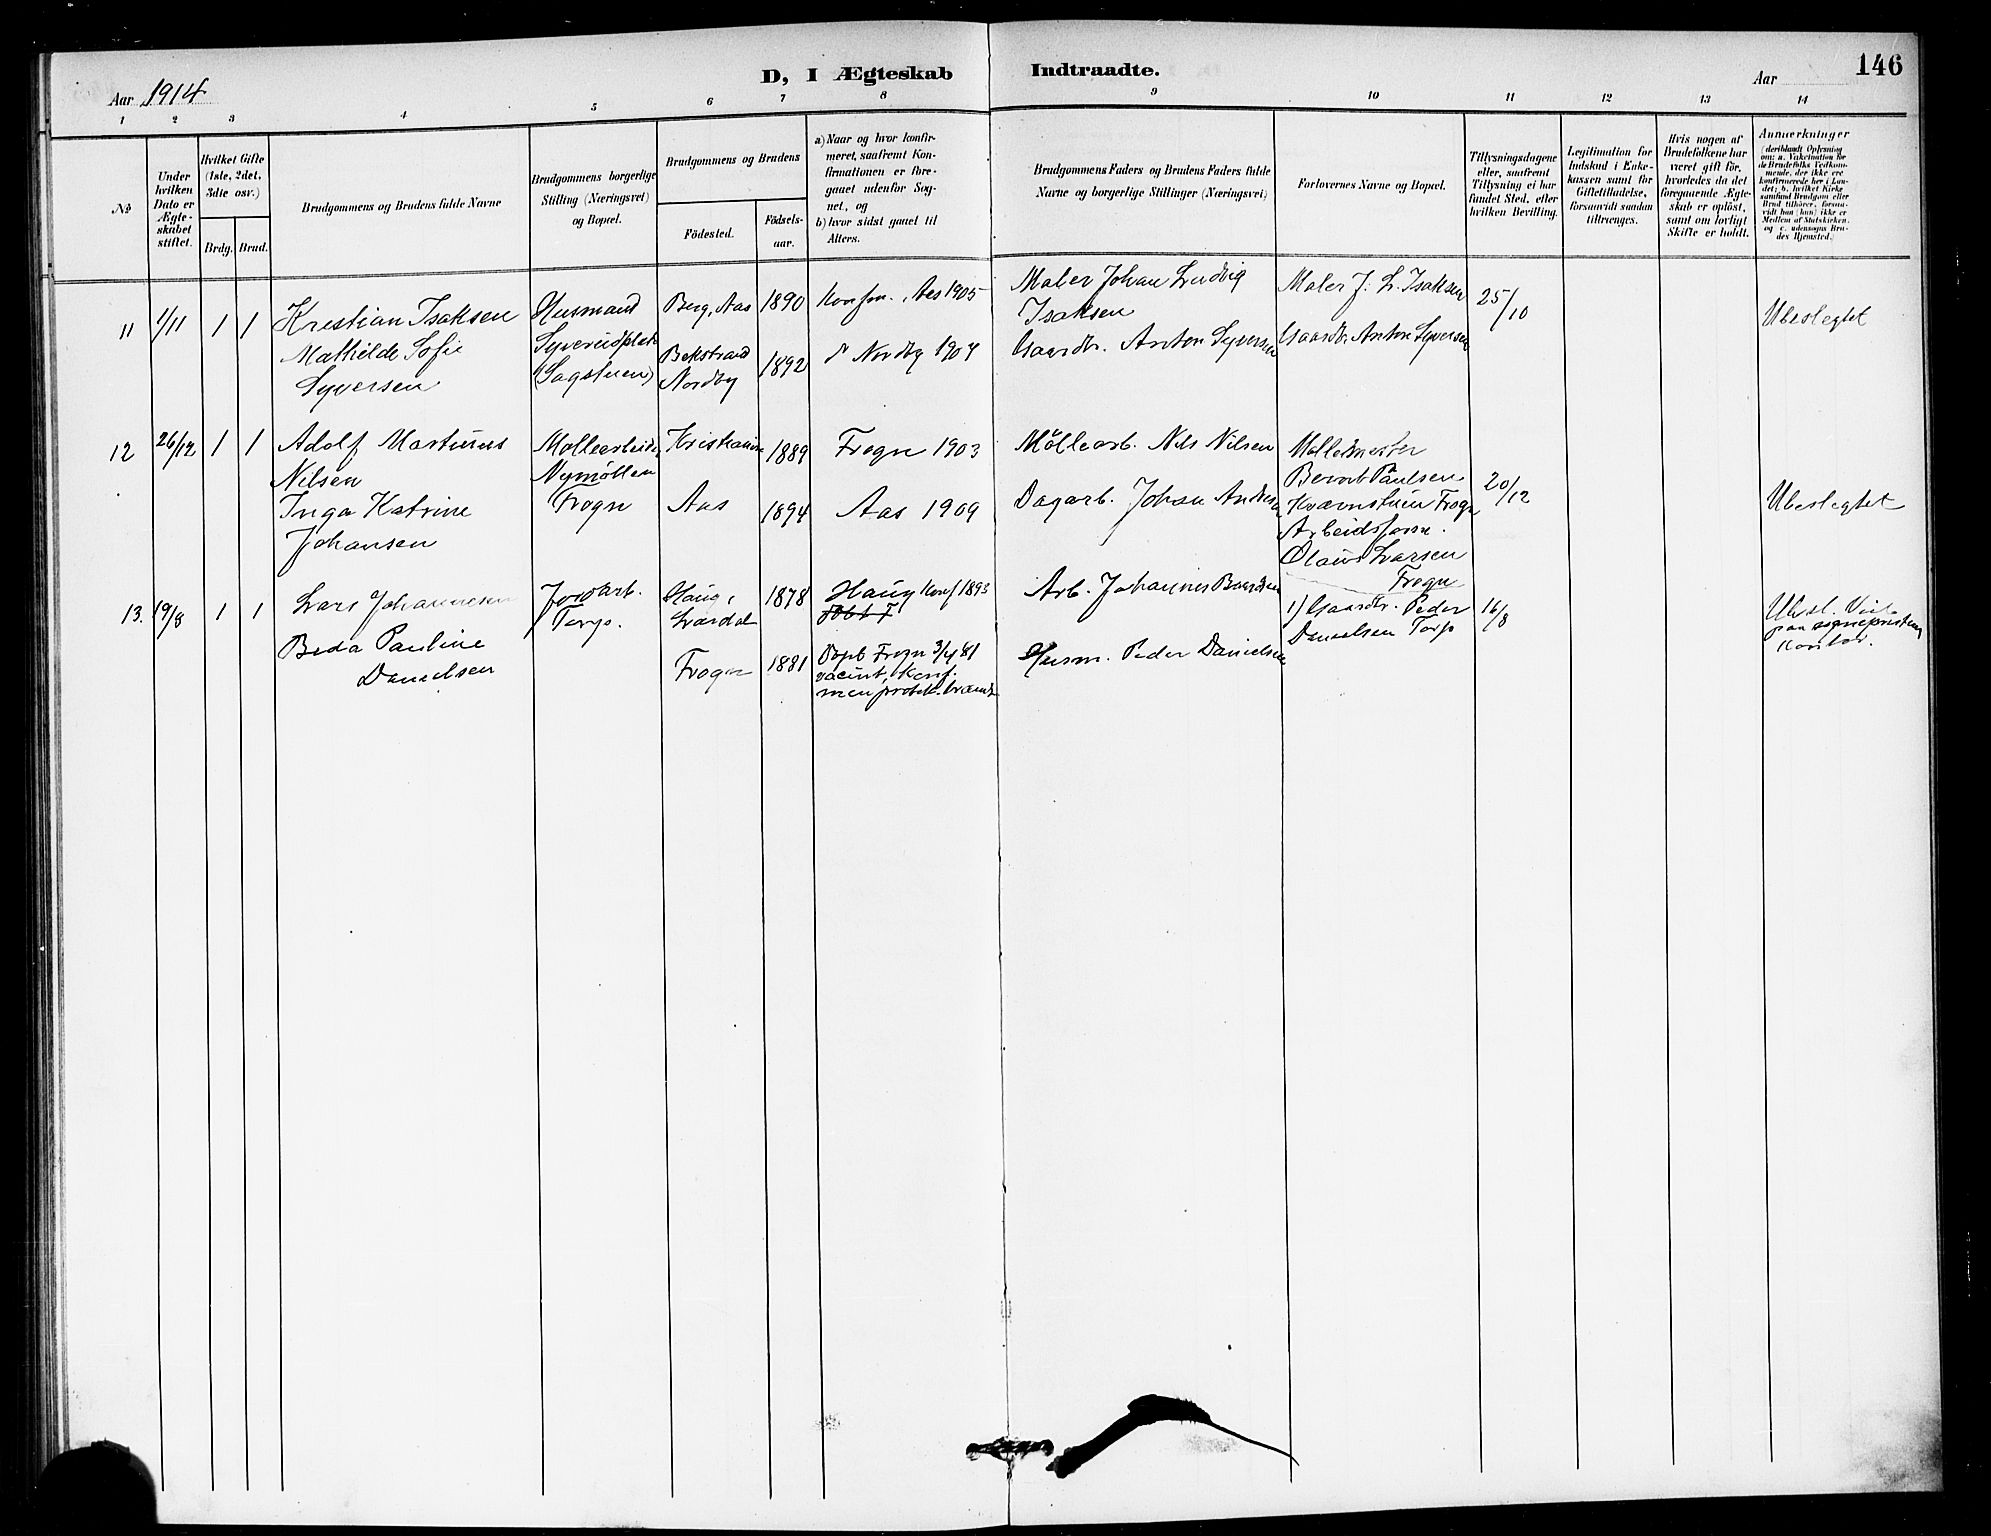 D, I Ægteskab Indtraadte.
146
Aar 1914
Aar
1 2 3 4 5 6 7 8 9 10 11 12 13 14
№
Under hvilken Dato er Ægte-skabet stiftet.
Hvilket Gifte (1ste, 2det, 3die osv.)
Brdg. Brud.
Brudgommens og Brudens fulde Navne
Brudgommens borgerlige Stilling (Næringsvei) og Bopæl.
Brudgommens og Brudens
Födested.
Födsels-aar.
a) Naar og hvor konfir-meret, saafremt Kon-firmationen er fore-gaaet udenfor Sog-net, og
b) hvor sidst gaaet til Alters.
Brudgommens Faders og Brudens Faders fulde Navne og borgerlige Stillinger (Næringsvei)
Forlovernes Navne og Bopæl.
Tillysningsdagene eller, saafremt Tillysning ei har fundet Sted, efter hvilken Bevilling.
Legitimation for Indskud i Enke-kassen samt for Giftetilladelse, forsaavidt saadan tiltrænges.
Hvis nogen af Brudefolkene har været gift för, hvorledes da det foregaaende Ægte-skab er oplöst, samt om lovligt Skifte er holdt.
Anmerkninger (deriblandt Oplysning om: a. Vakcination for de Brudefolks Vedkom-mende, der ikke ere konfirmerede her i Lan-det; b. hvilket Kirke-samfund Brudgom eller Brud tilhörer, forsaa-vidt han (hun) ikke er Medlem af Statskirken, og c. udensogns Bru-des Hjemsted.)
11 1/11 1 1
Kristian Isaksen
Mathilde Sofie
Syversen
Husmand
(Sagstuen)
Berg, Aas 1890
Bekstrand
Nordby 1892
Konfm. Aas 1905
Nordby 1907
Maler Johan Ludvig
Isaksen
Gaardbr. Anton Syversen
Maler J. L. Isaksen
Gaardbr. Anton Syversen
25/10
Ubeslegtet
12 26/12 1 1
Adolf Martinius
Nilsen
Inga Katrine
Johansen
Møllearbeider
Nymøllen
Frogn
Kristiania 1889
Aas 1894
Frogn 1903
Aas 1909
Møllearb. Nils Nilsen
Dagarb. Johan Andersen
Møllemester
Paulsen
Kværnstuen Frogn
Arbeidsform.
Olaus Larsen
Frogn
20/12
Ubeslegtet
13. 19/8 1 1
Lars Johannesen
Beda Pauline
Danielsen
Jordarb.
Torgo.
Haug,
1878
Frogn 1881
Haug Konf 1893
Døpt Frogn 3/4 81
vacint, Konf.
men protok. brændt
Arb. Johannes
Husm. Peder Danielsen
1) Gaardbr. Peder
Danielsen Torgo
16/8
Ubesl. Viet
paa sogneprestens
Kontor.